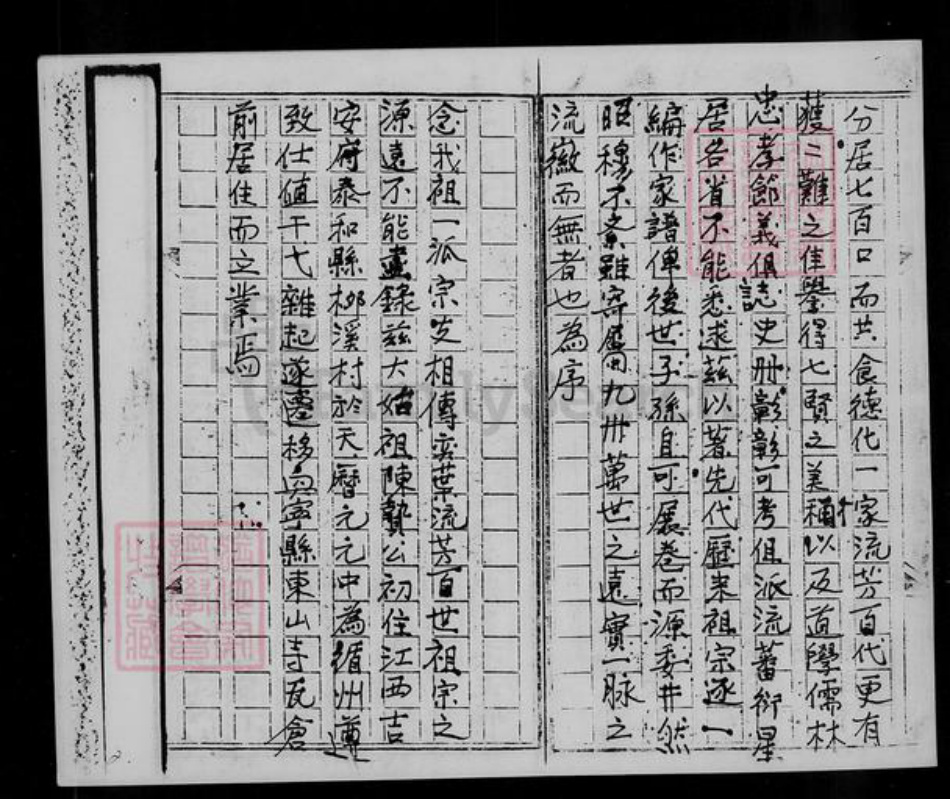 分居七百口而共食德化一家流芳百代更有
獲二難之佳譽得七賢之美稱以及道學儒林
忠孝節義俱誌史册彰彰可考但派流蕃衍星
居各省不能悉述茲以著先代歷來祖宗逐一
編作家譜俾後世子孫自可展卷而源委井然
昭穆不紊雖寄居九州萬世之遠實一脉之
流徽而無者也為序
念我祖一派宗支相傳奕葉流芳百世祖宗之
源遠不能盡錄茲大始祖陳贄公初住江西吉
安府泰和縣柳溪村於天曆元元中為循州遵
致仕值干七雜起遂遷移興寧縣東山寺瓦倉
前居住而立業焉